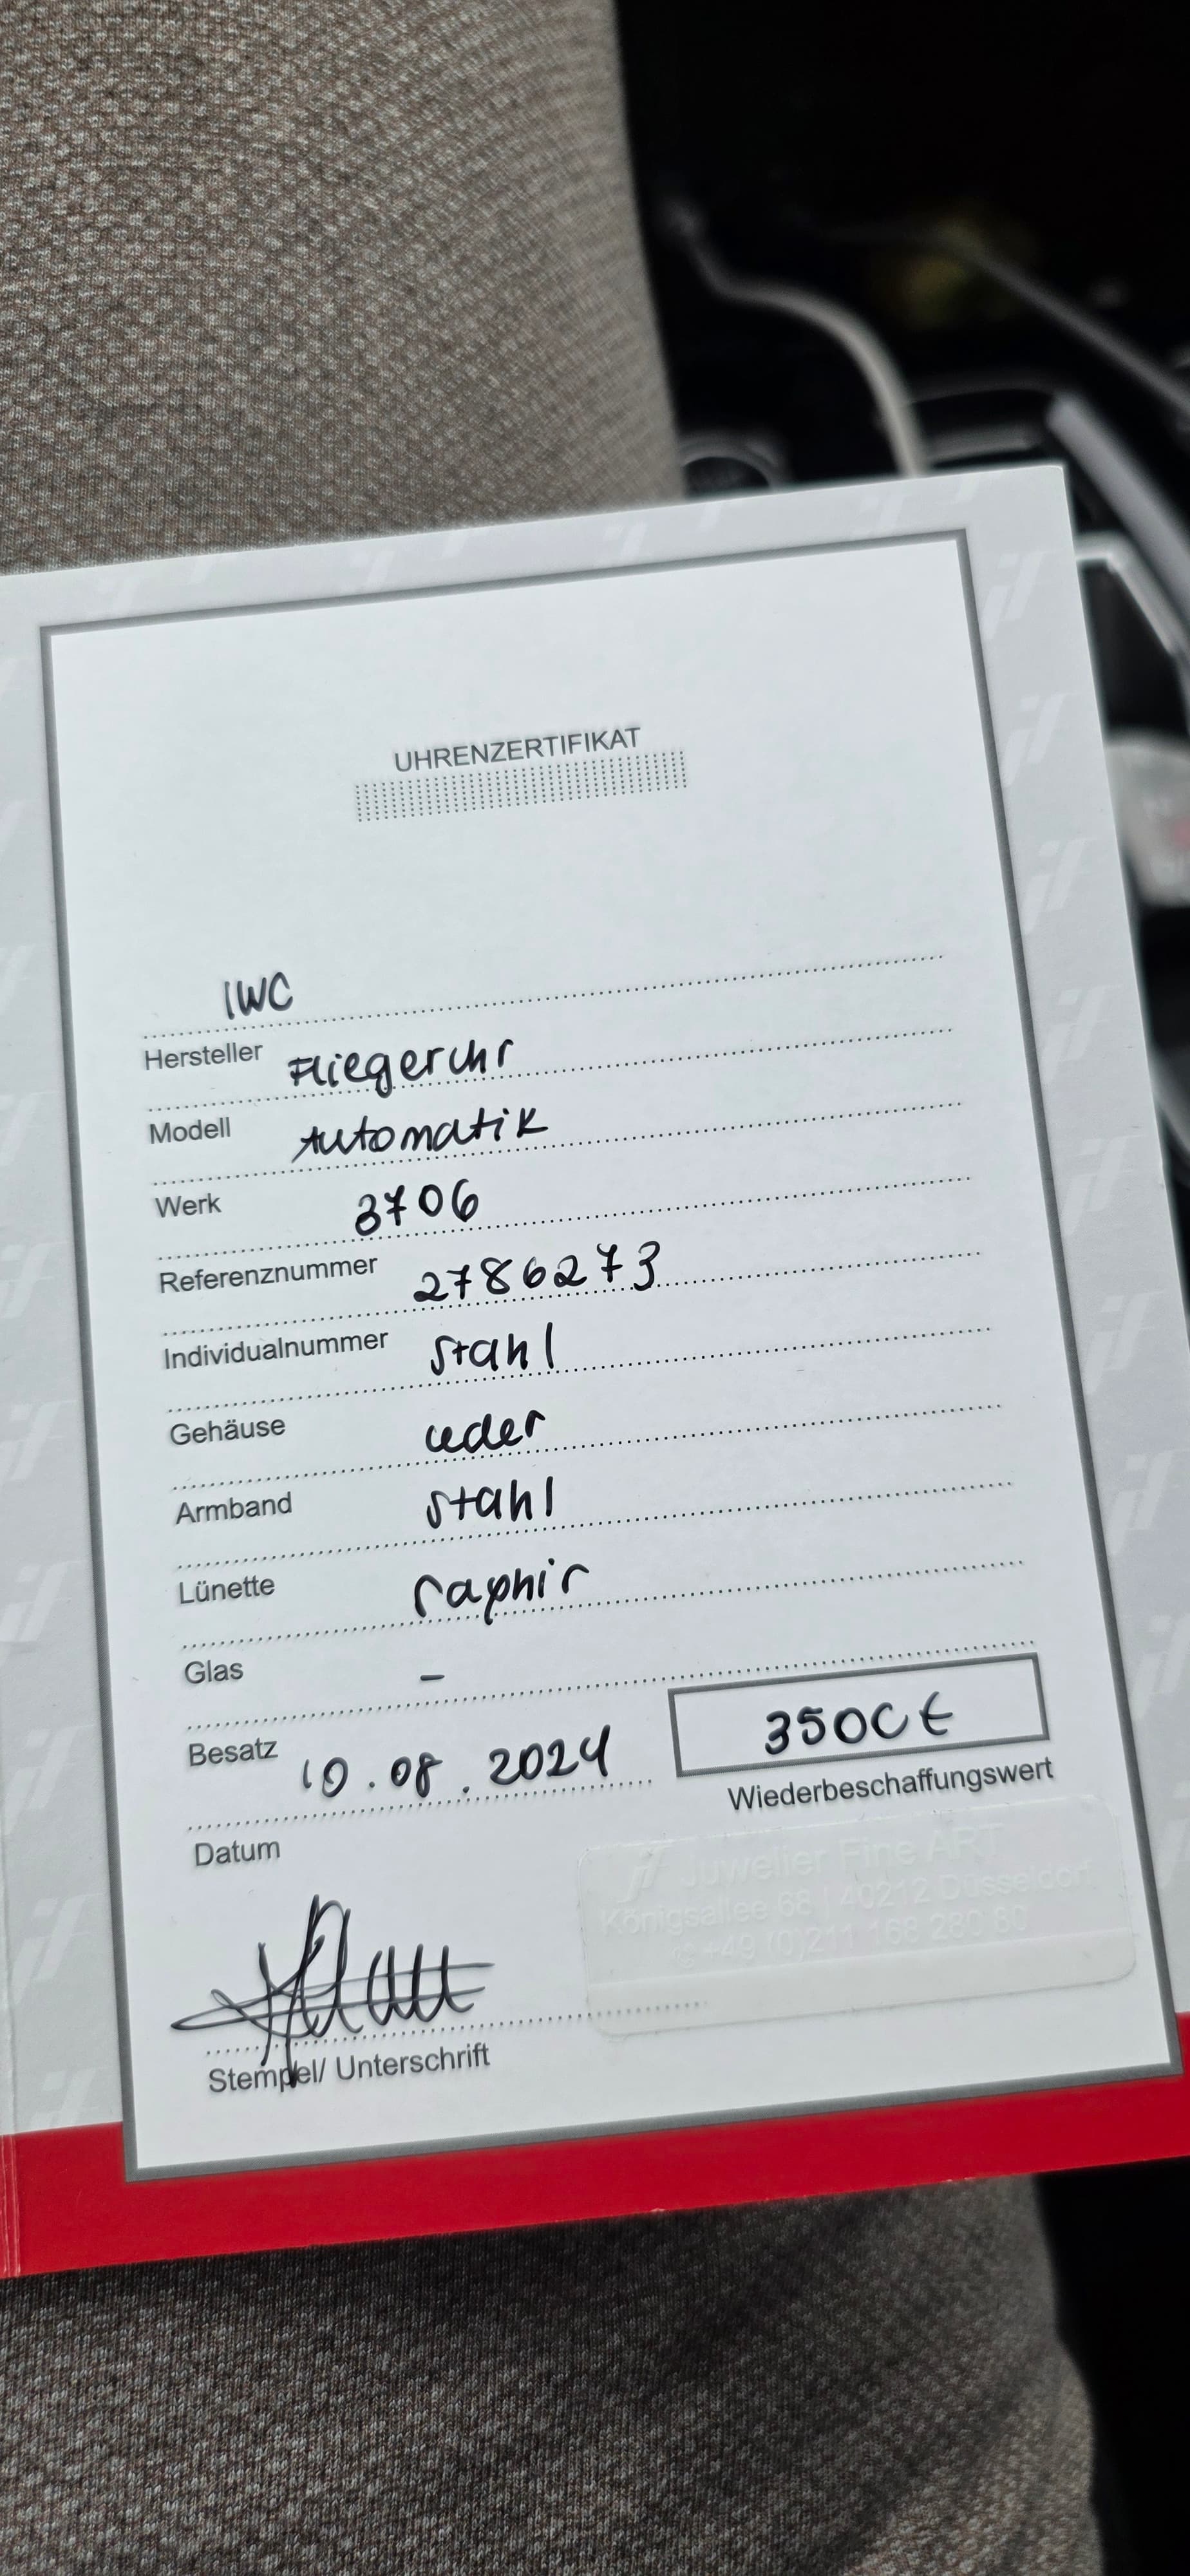 UHRENZERTIFIKAT
IWC
Hersteller
Fliegeruhr
Modell
Automatik
Werk
3706
Referenznummer
2786273
Individualnummer
Stahl
Gehäuse
Leder
Armband
Stahl
Lünette
Saphir
Glas
–
Besatz
10.08.2024
3500€
Wiederbeschaffungswert
Datum
Juwelier Fine ART
Königsallee 68 | 40212 Düsseldorf
✆ +49 (0)211 168 280 80
Stempel/ Unterschrift